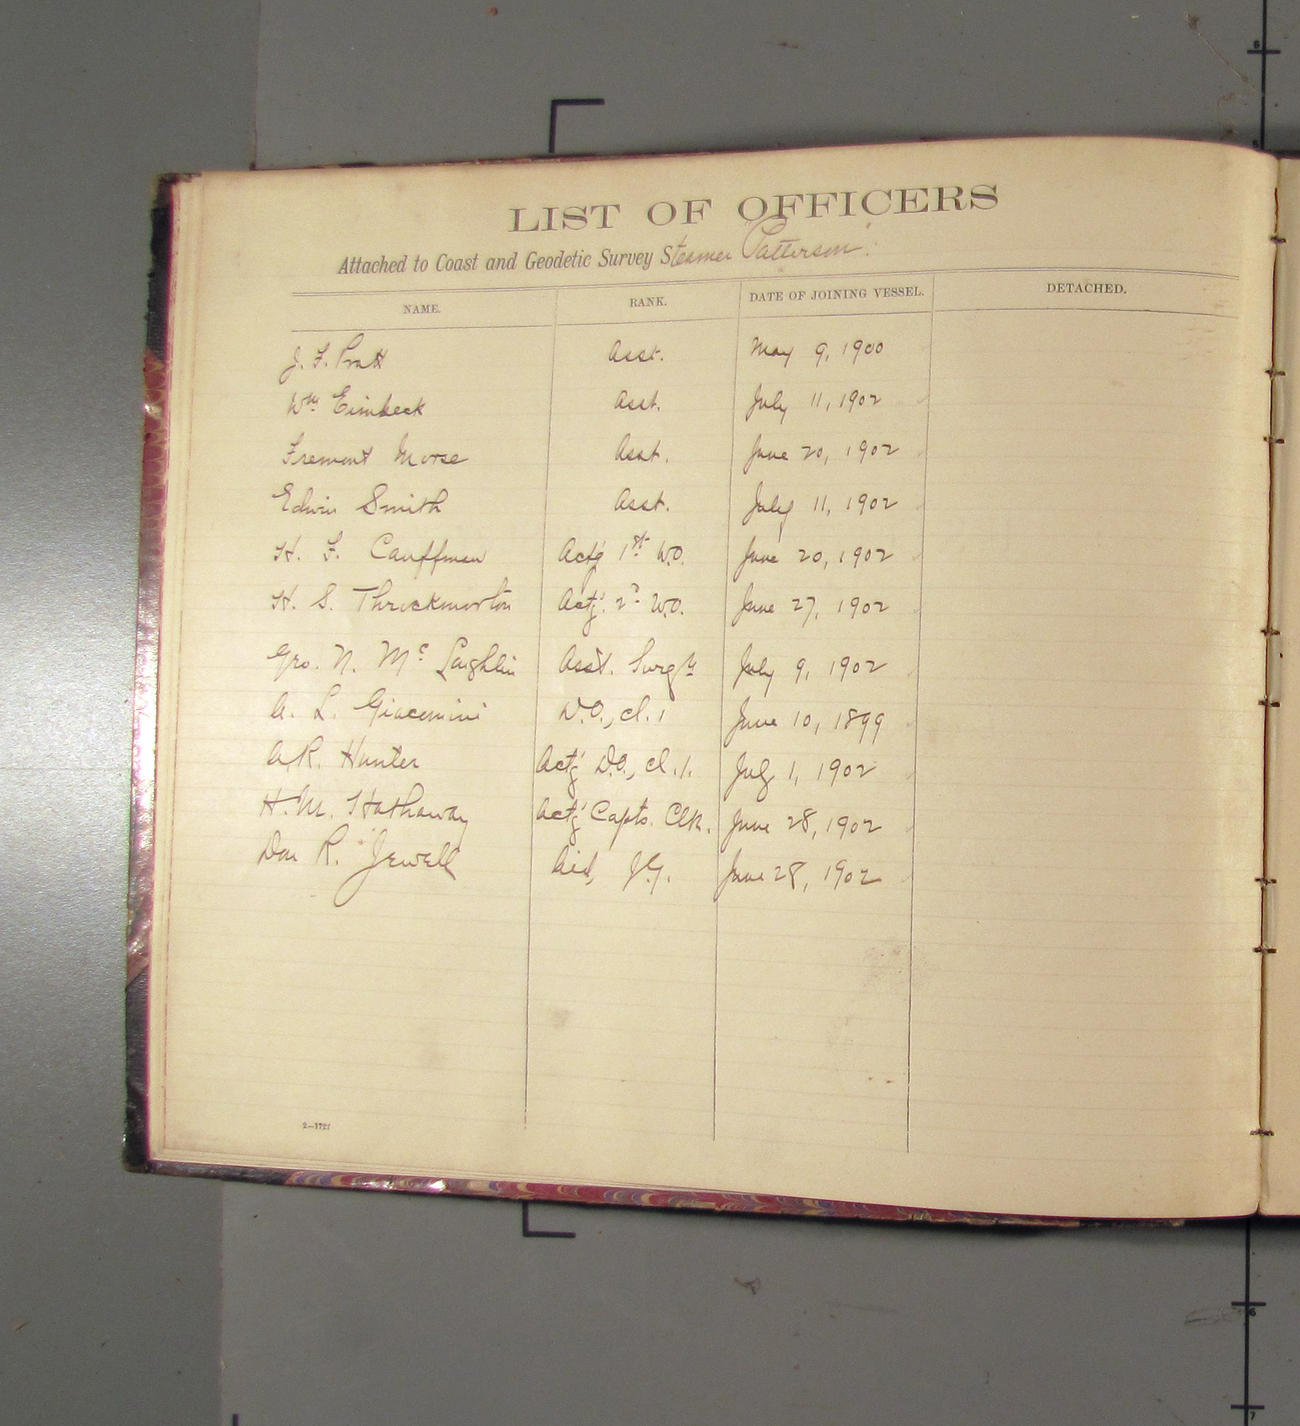 LIST OF OFFICERS
Attached to Coast and Geodetic Survey Steamer "Patterson".
NAME. RANK. DATE OF JOINING VESSEL. DETACHED.
J. F. Pratt Asst. May 9, 1900
Wm Eimbeck Asst. July 11, 1902
Fremont Morse Asst. June 20, 1902
Edwin Smith Asst. July 11, 1902
H. F. Cauffman Act'g 1st W.O. June 20, 1902
H. S. Throckmorton Act'g. 2d W.O. June 27, 1902
Geo. N. Mc Laughlin Asst. Surgn July 9, 1902
A. L. Giacomini D.O., cl. 1 June 10, 1899
A R. Hunter Act'g D.O., cl. 1. July 1, 1902
H. M. Hathaway Act'g Capts. Clk. June 28, 1902
Don R. Jewell Aid, J.G. June 28, 1902
2—1721
6
6
7